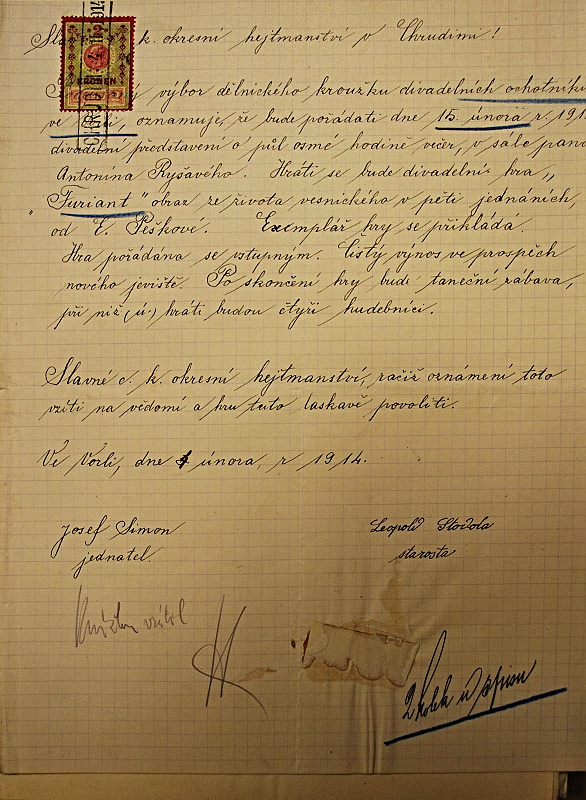 k. okresní hejtmanství v Chrudimi!
KRONEN
CHRUDIM
výbor dělnického kroužku divadelních ochotníků
ve oznamuje, že bude pořádati dne 15. února r. 191
divadelní představení o půl osmé hodině večer, v sále pana
Antonína Ryšavého. Hráti se bude divadelní hra „
Furiant" obraz ze života vesnického v pěti jednáních,
od E. Peškové. Exemplář hry se přikládá.
Hra pořádána se vstupným. Čistý výnos ve prospěch
nového jeviště. Po skončení hry bude taneční zábava,
při níž (ú.) hráti budou čtyři hudebníci.
Slavné c. k. okresní hejtmanství, račiž oznámení toto
vzíti na vědomí a hru tuto laskavě povoliti.
Ve Vorli, dne února, r 1914.
Josef Simon
jednatel.
Leopold Stodola
starosta
2 kolek u spisu